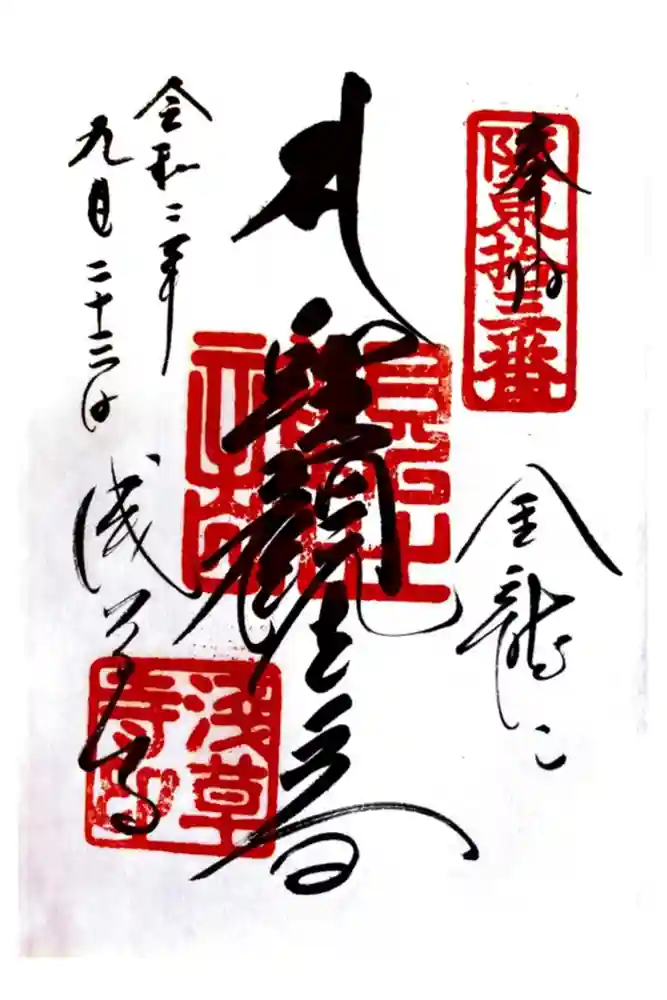 奉拝
坂東拾三番
金龍山
聖観世音
令和二年
九月二十三日
浅草寺
浅草
寺印